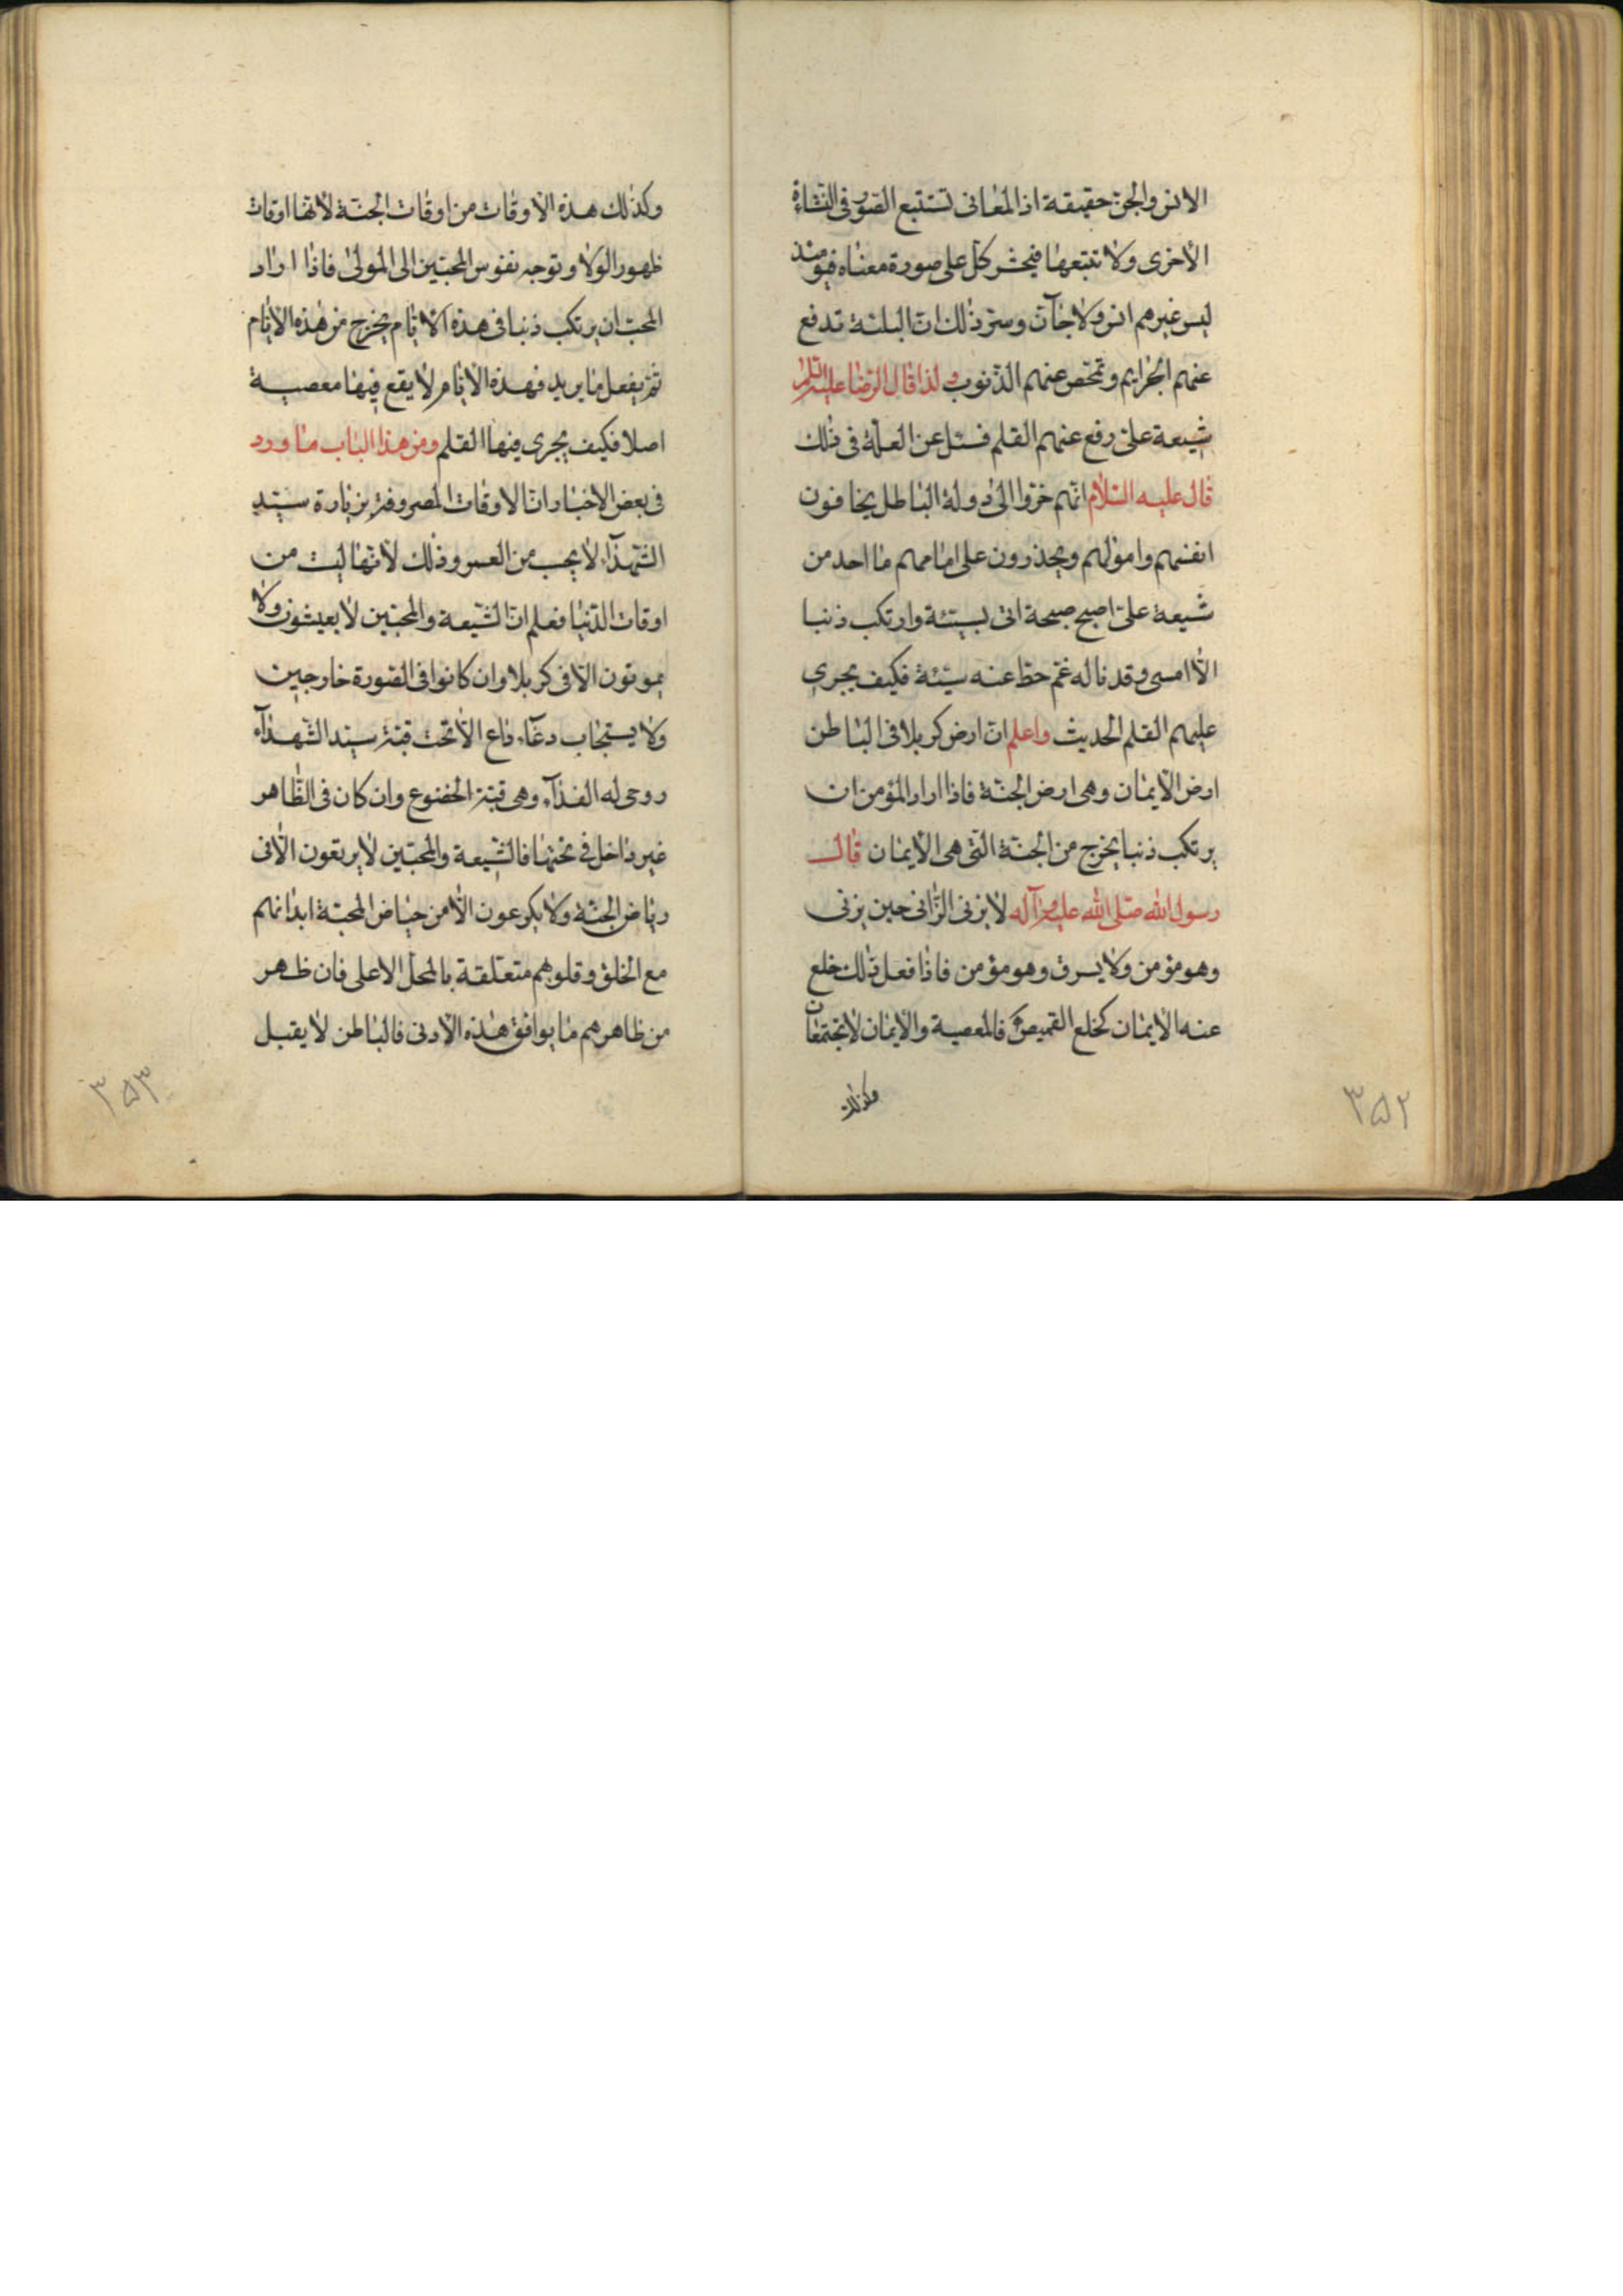 الانس والجن حقيقة اذ المعانى تستتبع الصور فى النشاءة
الاخرى ولا تتبعها فيحشر كل على صورة معناه فيومئذ
ليس غيرهم انس ولا جآن وستر ذلك ان البلية تدفع
عنهم الجرايم وتمحص عنهم الذنوب ولذا قال الرضا عليه السلام
شيعة على رفع عنهم القلم فسئل عن العلة فى ذلك
قال عليه السلام انهم اخروا الى دولة الباطل يخافون
انفسهم واموالهم ويحذرون على امامهم ما احد من
شيعة على اصبح صبحة اتى بسيئة وارتكب ذنبا
الا امسى وقد ناله غم حط عنه سيئة فكيف يجرى
عليهم القلم الحديث واعلم ان ارض كربلا فى الباطن
ارض الايمان وهى ارض الجنة فاذا اراد المؤمن ان
يرتكب ذنبا يخرج من الجنة التى هى الايمان قال
رسول الله صلى الله عليه وآله لا يزنى الزانى حين يزنى
وهو مؤمن ولا يسرق وهو مؤمن فاذا فعل ذلك خلع
عنه الايمان كخلع القميص فالمعصية والايمان لا يجتمعان
وكذلك
٣٥٢
وكذلك هذه الاوقات من اوقات الجنة لانها اوقات
ظهور الولا وتوجه نفوس المحبين الى المولى فاذا اراد
المحب ان يرتكب ذنبا فى هذه الايام يخرج من هذه الايام
ثم يفعل ما يريد فهذه الايام لا يقع فيها معصية
اصلا فكيف يجرى فيها القلم ومن هذا الباب ما ورد
فى بعض الاخبار ان الاوقات المصروفة بزيارة سيد
الشهدآء لا يحسب من العمر وذلك لانها ليست من
اوقات الدنيا فعلم ان الشيعة والمحبين لا يعيشون ولا
يموتون الا فى كربلا وان كانوا فى الصورة خارجين
ولا يستجاب دعآء داع الا تحت قبة سيد الشهدآء
روحى له الفدآء وهى قبة الخضوع وان كان فى الظاهر
غير داخل فى تحتها فالشيعة والمحبين لا يرتعون الا فى
رياض الجنة ولا يكرعون الا من حياض المحبة ابدانهم
مع الخلق وقلوبهم متعلقة بالمحل الاعلى فان ظهر
من ظاهرهم ما يوافق هذه الادنى فالباطن لا يقبل
٣٥٣